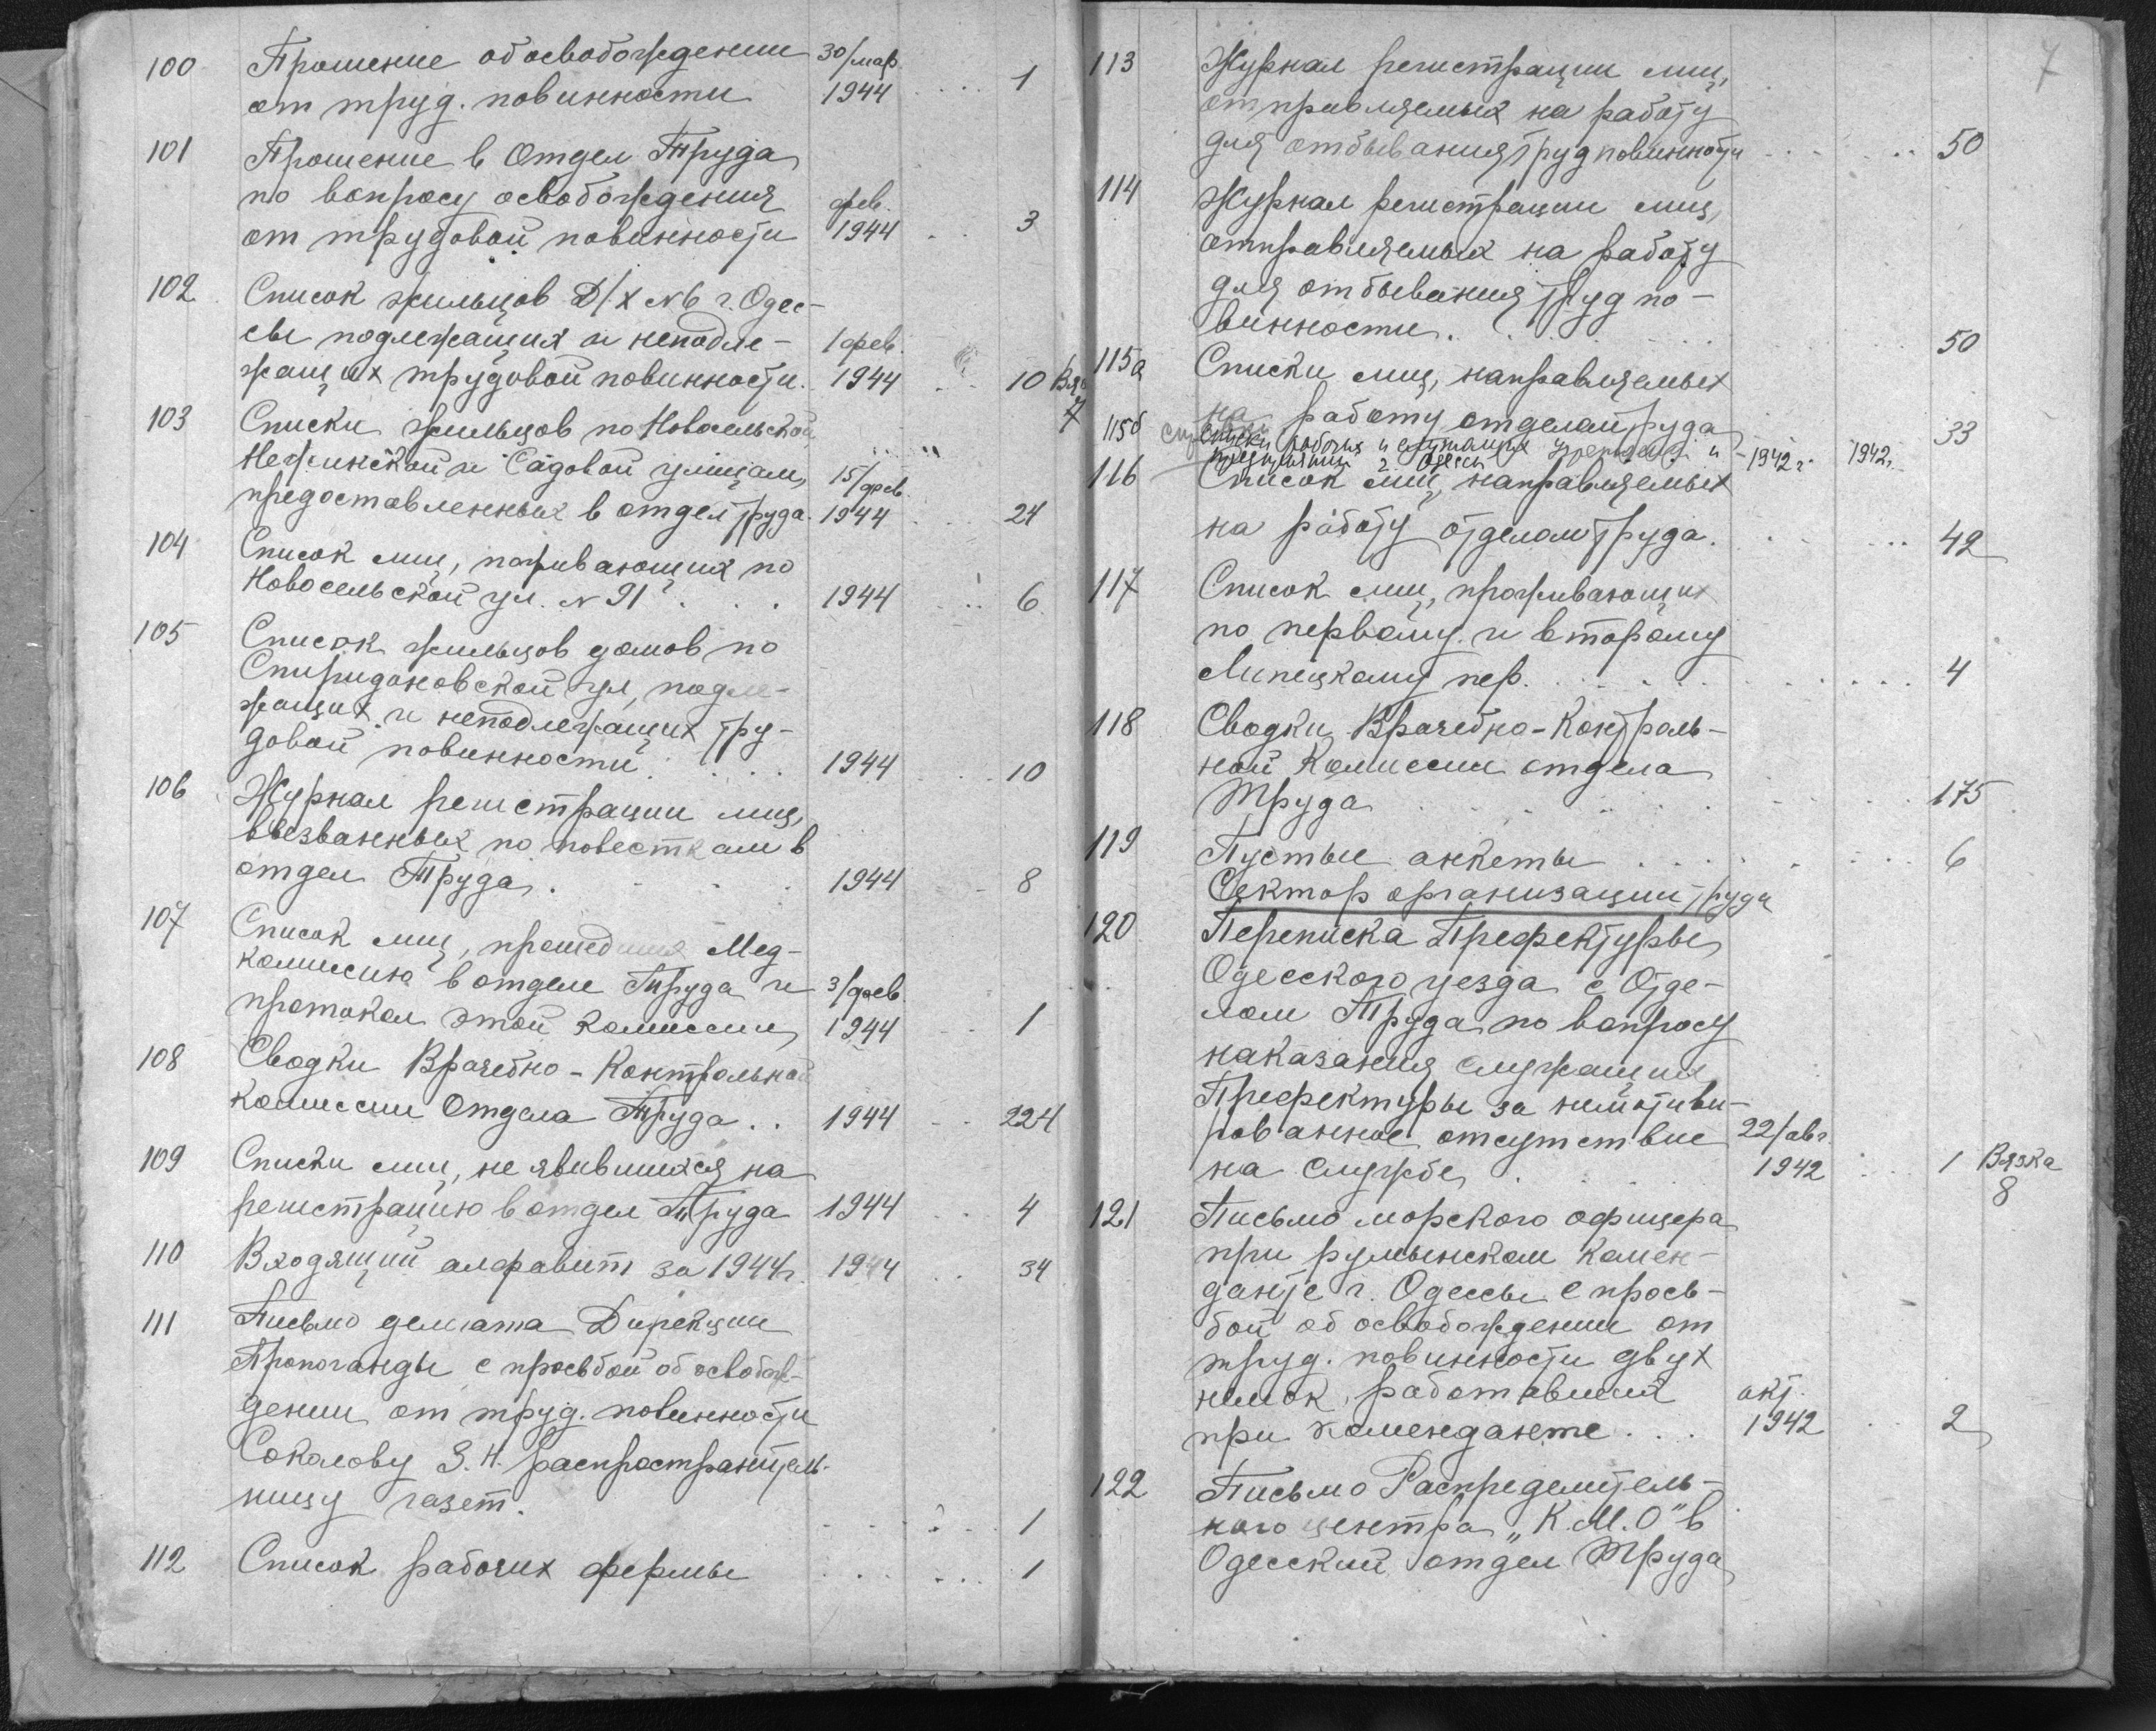 100 Прошение об освобождении 30/мар.
от труд. повинности 1944 .... 1
101 Прошение в Отдел Труда
по вопросу освобождения фев.
от трудовой повинности 1944 .. 3
102 Список жильцов Д/Х №6 г. Одес-
сы подлежащих и неподле- 1 фев.
жащих трудовой повинности. 1944 .. 10
7
103 Списки жильцов по Новосельской
Нежинской и Садовой улицам, 15/фев.
предоставленных в отдел труда. 1944 ... 24
104 Список лиц, поживающих по
Новосельской ул. №91 . . . 1944 ... 6
105 Список жильцов домов по
Спиридоновской ул, подле-
жащих и неподлежащих тру-
довой повинности . . . . 1944 ... 10
106 Журнал регистрации лиц,
вызванных по повесткам в
отдел Труда . . . . 1944 .. 8
107 Список лиц, прошедших Мед-
комиссию в отделе Труда и 3/фев
протокол этой комиссии 1944 .. 1
108 Сводки Врачебно-Контрольной
комиссии Отдела Труда . . 1944 .. 224
109 Списки лиц, не явившихся на
регистрацию в отдел Труда 1944 ... 4
110 Входящий алфавит за 1944г. 1944 .. 34
111 Письмо делегата Дирекции
Пропоганды с просьбой об освобож-
дении от труд. повинности
Соколову З.Н. распространитель-
ницу газет. ..... 1
112 Список рабочих фермы ...... 1
7
113 Журнал регистрации лиц,
отправляемых на работу
для отбывания труд повинности ..... 50
114 Журнал регистрации лиц,
отправляемых на работу
для отбывания труд по-
винности. ...... 50
115а Списки лиц, направляемых
на работу отделом труда 33
115б списки рабочих и служащих учреждений и 1942 г. 1942г.
предприятий г. Одессы
116 Список лиц, направляемых
на работу отделом труда. ..... 42
117 Список лиц, проживающих
по первому и второму
Липецкому пер. ........ 4
118 Сводки Врачебно-Контроль-
ной Комиссии отдела
Труда ....... 175
119 Пустые анкеты ....... 6
Сектор организации труда
120 Переписка Префектуры
Одесского уезда с Отде-
лом Труда по вопросу
наказания служащих
Префектуры за немотиви-
рованное отсутствие 22/авг.
на службе . 1942 ... 1 Вязка
8
121 Письмо морского офицера
при румынском комен-
данте г. Одессы с прось-
бой об освобождении от
труд. повинности двух
немок, работавших окт.
при коменданте . . . 1942 .. 2
122 Письмо Распределитель-
ного центра „К.М.О" в
Одесский отдел Труда